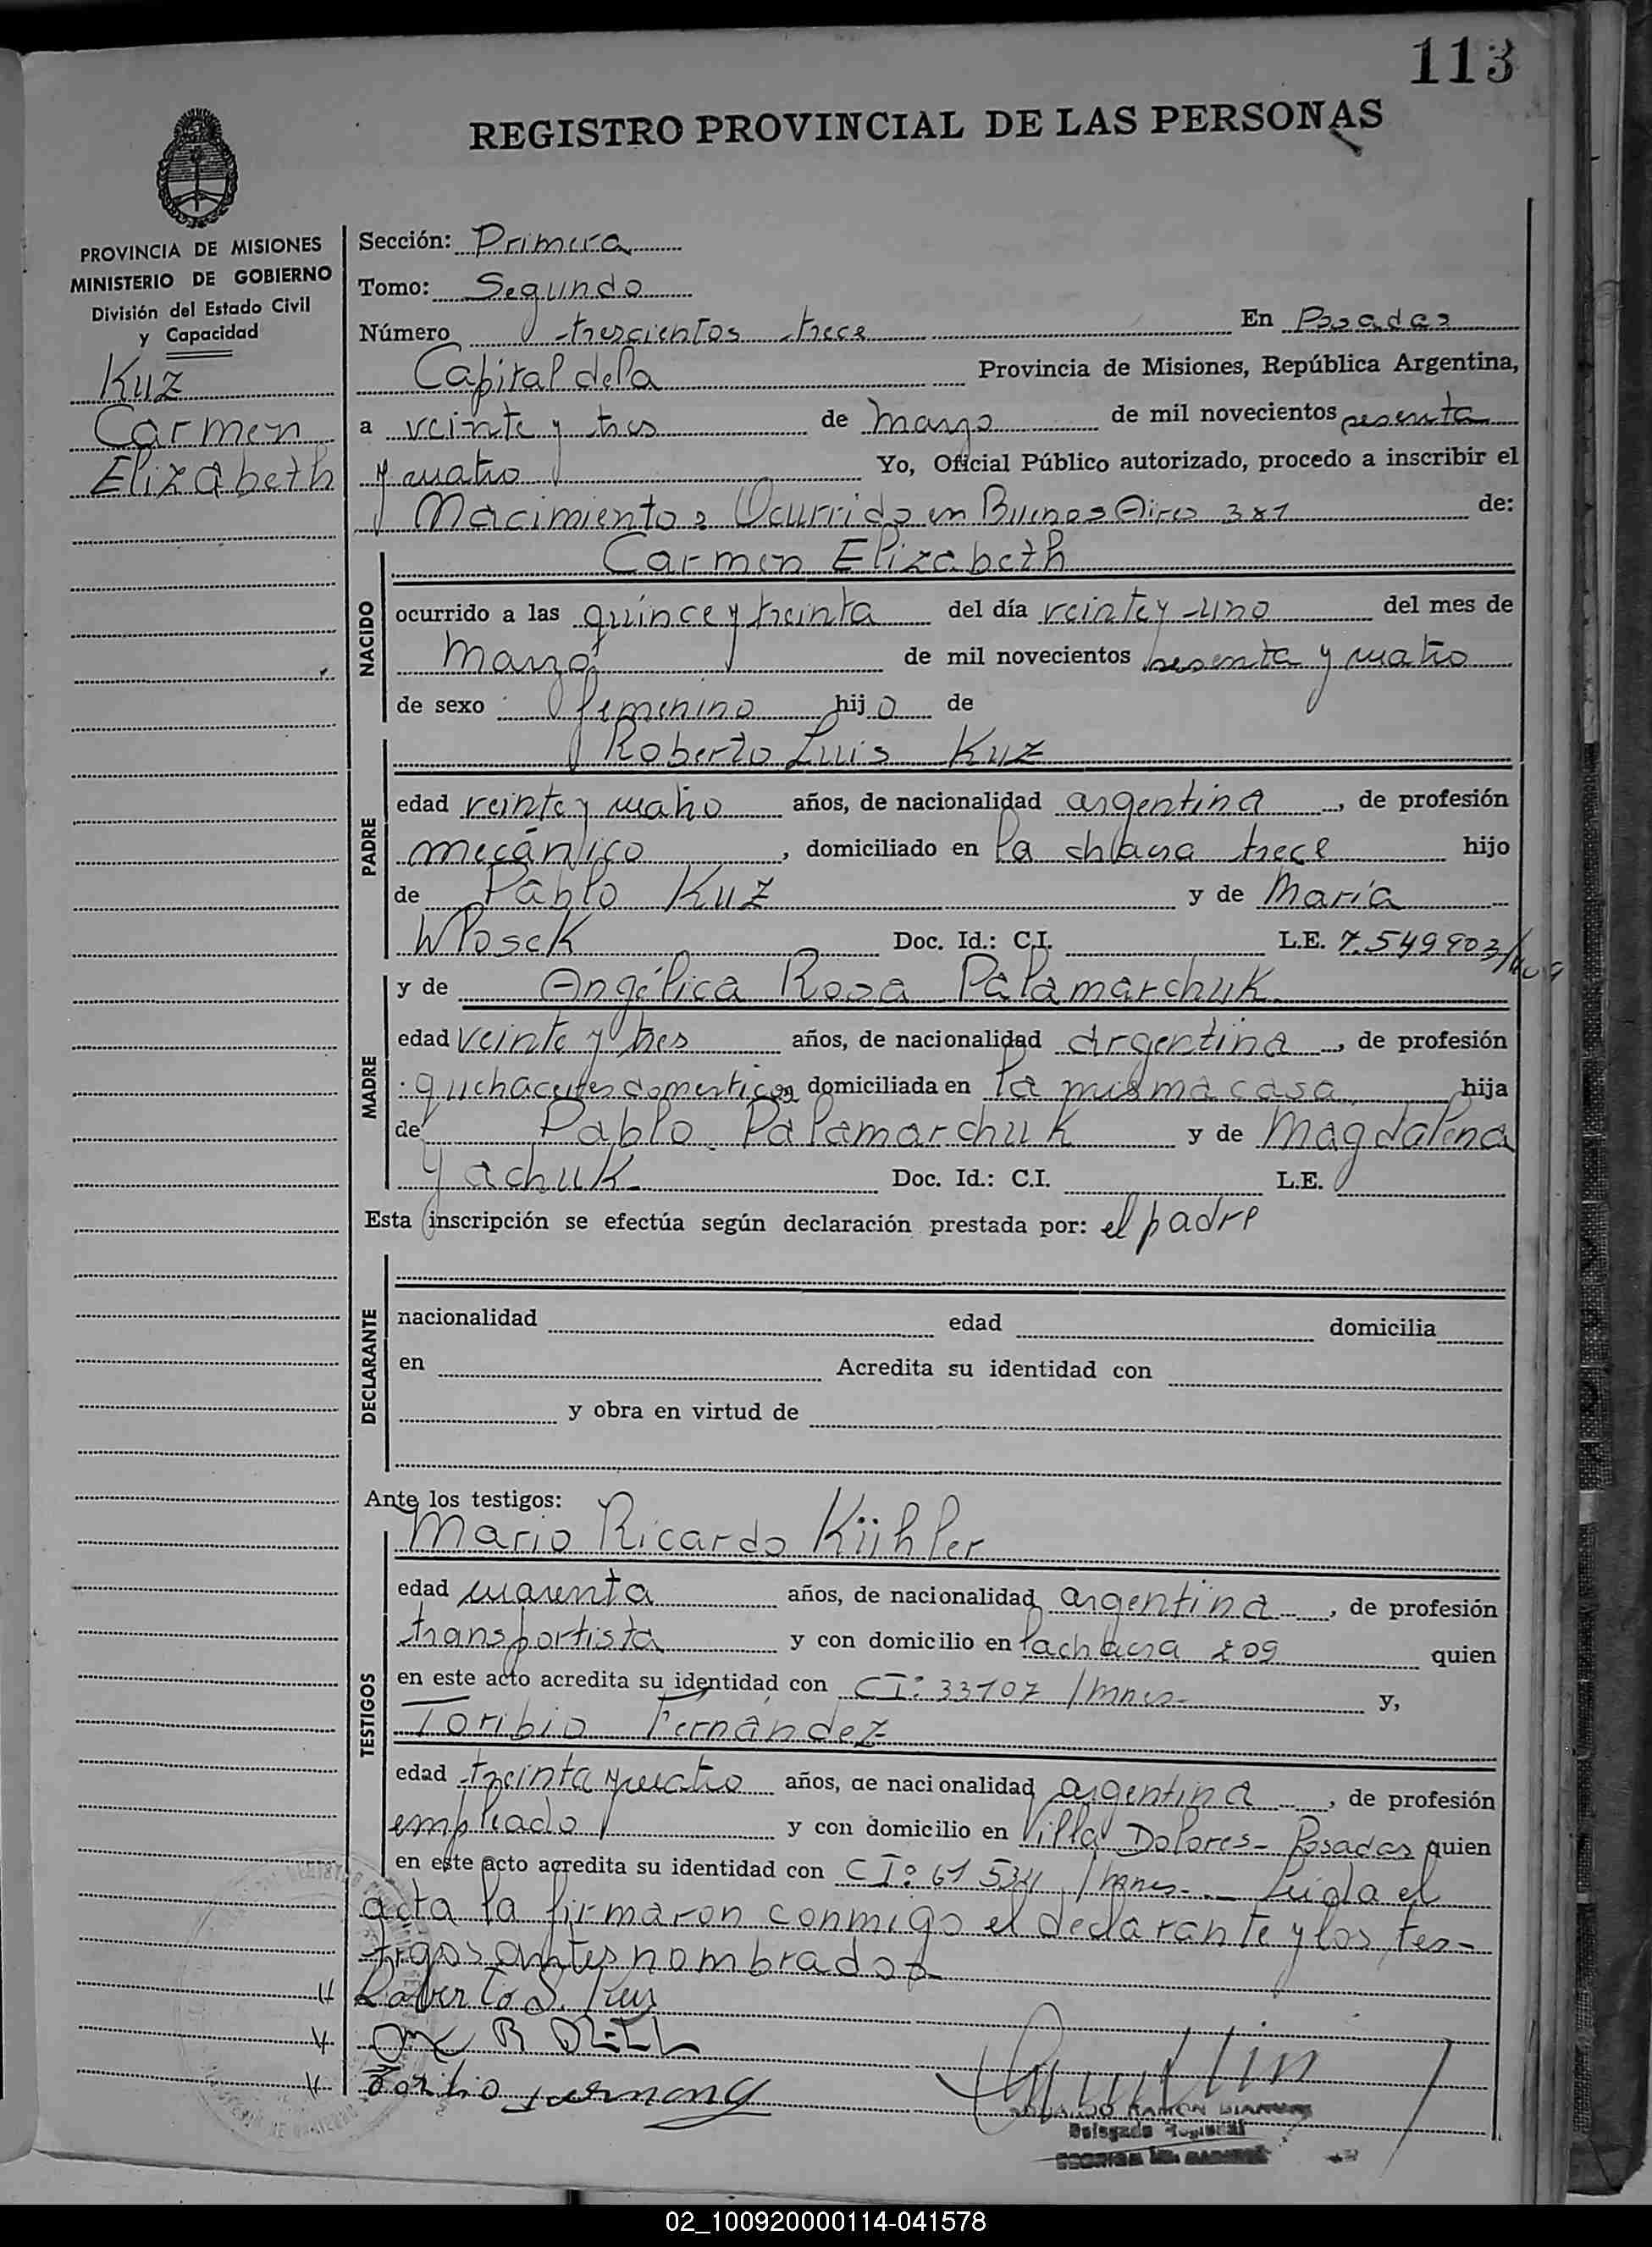 113
REGISTRO PROVINCIAL DE LAS PERSONAS
PROVINCIA DE MISIONES
MINISTERIO DE GOBIERNO
División del Estado Civil
y Capacidad
Kuz
Carmen
Elizabeth
Sección: Primera
Tomo: Segundo
Número trescientos trece En Posadas
Capital de la Provincia de Misiones, República Argentina,
a veinte y tres de marzo de mil novecientos sesenta
y cuatro Yo, Oficial Público autorizado, procedo a inscribir el
Nacimiento: Ocurrido en Buenos Aires 381 de:
NACIDO
Carmen Elizabeth
ocurrido a las quince y treinta del día veinte y uno del mes de
marzo de mil novecientos sesenta y cuatro
de sexo femenino hijo de
PADRE
Roberto Luis Kuz
edad veinte y cuatro años, de nacionalidad argentina, de profesión
mecánico, domiciliado en la chacra trece hijo
de Pablo Kuz y de María
Wlosek Doc. Id.: C.I. L.E. 7.549.903/
MADRE
y de Angélica Rosa Palamarchuk
edad veinte y tres años, de nacionalidad argentina, de profesión
quehaceres domesticos domiciliada en la misma casa hija
de Pablo Palamarchuk y de Magdalena
Yachuk Doc. Id.: C.I. L.E.
Esta inscripción se efectúa según declaración prestada por: el padre
DECLARANTE
nacionalidad edad domicilia
en Acredita su identidad con
y obra en virtud de
Ante los testigos:
TESTIGOS
Mario Ricardo Kühler
edad cuarenta años, de nacionalidad argentina, de profesión
transportista y con domicilio en la chacra 209 quien
en este acto acredita su identidad con CI: 33107 /mnes- y,
Toribio Fernández
edad treinta y cuatro años, de nacionalidad argentina, de profesión
empleado y con domicilio en Villa Dolores - Posadas quien
en este acto acredita su identidad con CI: 61534 /mnes-. Leida el
acta la firmaron conmigo el declarante y los tes-
tigos antes nombrados
Roberto L. Kuz
Toribio
RAMON
Delegado Regional
02_100920000114-041578